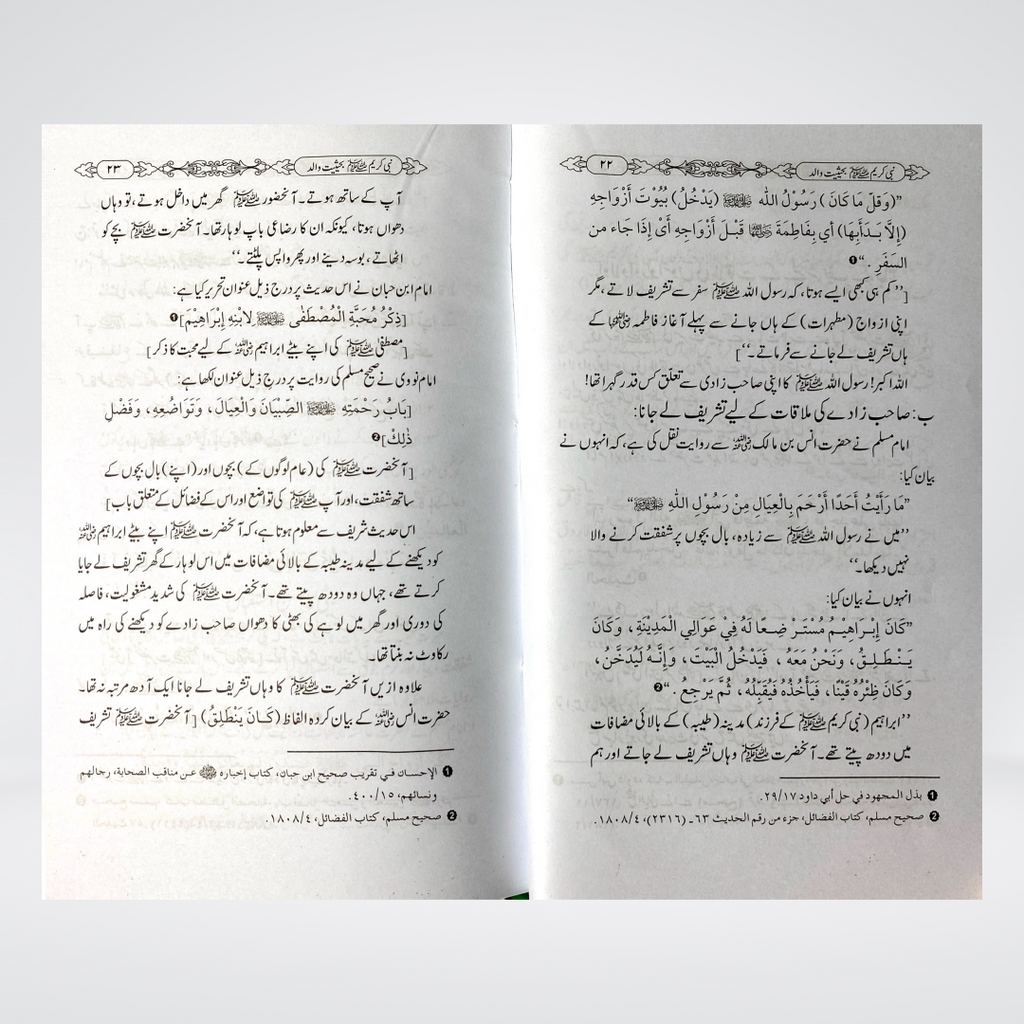 نبی کریم ﷺ بحیثیت والد
۲۲
”(وَقَلَّ مَا كَانَ) رَسُوْلُ اللّٰه ﷺ (يَدْخُلُ) بُيُوْتَ أَزْوَاجِهِ
(إِلَّا بَدَأَبِهَا) أي بِفَاطِمَةَ ﷞ قَبْلَ أَزْوَاجِهِ أَيْ إِذَا جَاء من
السَفَرِ.“❶
[’’کم ہی کبھی ایسے ہوتا، کہ رسول اللہ ﷺ سفر سے تشریف لاتے، مگر
اپنی ازواج (مطہرات) کے ہاں جانے سے پہلے آغاز فاطمہ رضی اللہ عنہا کے
ہاں تشریف لے جانے سے فرماتے۔‘‘]
اللہ اکبر! رسول اللہ ﷺ کا اپنی صاحب زادی سے تعلّق کس قدر گہرا تھا!
ب: صاحب زادے کی ملاقات کے لیے تشریف لے جانا:
امام مسلم نے حضرت انس بن مالک رضی اللہ عنہ سے روایت نقل کی ہے، کہ انہوں نے
بیان کیا:
”مَا رَأَيْتُ أَحَدًا أَرْحَمَ بِالْعِيَالِ مِنْ رَسُوْلِ اللّٰهِ ﷺ“
’’میں نے رسول اللہ ﷺ سے زیادہ، بال بچوں پر شفقت کرنے والا
نہیں دیکھا۔‘‘
انہوں نے بیان کیا:
”كَانَ إِبْرَاهِيْمُ مُسْتَرْضِعًا لَهُ فِيْ عَوَالِي الْمَدِيْنَةِ، وَكَانَ
يَنْطَلِقُ، وَنَحْنُ مَعَهُ، فَيَدْخُلُ الْبَيْتَ، وَإِنَّهُ لَيُدَخَّنُ،
وَكَانَ ظِئْرُهُ قَيْنًا، فَيَأْخُذُهُ فَيُقَبِّلُهُ، ثُمَّ يَرْجِعُ.“❷
’’ابراہیم (نبی کریم ﷺ کے فرزند) مدینہ (طیبہ) کے بالائی مضافات
میں دودھ پیتے تھے۔ آنحضرت ﷺ وہاں تشریف لے جاتے اور ہم
❶ بذل المجهود في حل أبي داود ۲۹/۱۷.
❷ صحيح مسلم، كتاب الفضائل، جزء من رقم الحديث ۶۳ـ (۲۳۱۶)، ۱۸۰۸/۴.
نبی کریم ﷺ بحیثیت والد
۲۳
آپ کے ساتھ ہوتے۔ آنحضور ﷺ گھر میں داخل ہوتے، تو وہاں
دھواں ہوتا، کیونکہ ان کا رضاعی باپ لوہار تھا۔ آنحضرت ﷺ بچے کو
اٹھاتے، بوسہ دیتے اور پھر واپس پلٹتے۔‘‘
امام ابن حبان نے اس حدیث پر درج ذیل عنوان تحریر کیا ہے:
[ذِكْرُ مُحَبَّةِ الْمُصْطَفٰى ﷺ لِابْنِهِ إِبْرَاهِيْمَ]❶
[مصطفیٰ ﷺ کی اپنے بیٹے ابراہیم رضی اللہ عنہ کے لیے محبت کا ذکر]
امام نووی نے صحیح مسلم کی روایت پر درج ذیل عنوان لکھا ہے:
[بَابُ رَحْمَتِهِ ﷺ الصِّبْيَانَ وَالْعِيَالَ، وَتَوَاضُعِهِ، وَفَضْلِ
ذٰلِكَ]❷
[آنحضرت ﷺ کی (عام لوگوں کے) بچوں اور (اپنے) بال بچوں کے
ساتھ شفقت، اور آپ ﷺ کی تواضع اور اس کے فضائل کے متعلق باب]
اس حدیث شریف سے معلوم ہوتا ہے، کہ آنحضرت ﷺ اپنے بیٹے ابراہیم رضی اللہ عنہ
کو دیکھنے کے لیے مدینہ طیبہ کے بالائی مضافات میں اس لوہار کے گھر تشریف لے جایا
کرتے تھے، جہاں وہ دودھ پیتے تھے۔ آنحضرت ﷺ کی شدید مشغولیت، فاصلہ
کی دوری اور گھر میں لوہے کی بھٹی کا دھواں صاحب زادے کو دیکھنے کی راہ میں
رکاوٹ نہ بنتا تھا۔
علاوہ ازیں آنحضرت ﷺ کا وہاں تشریف لے جانا ایک آدھ مرتبہ نہ تھا۔
حضرت انس رضی اللہ عنہ کے بیان کردہ الفاظ (كَانَ يَنْطَلِقُ) [آنحضرت ﷺ تشریف
❶ الإحسان في تقريب صحيح ابن حبان، كتاب إخباره ﷺ عن مناقب الصحابة، رجالهم
ونسائهم، ۴۰۰/۱۵.
❷ صحيح مسلم، كتاب الفضائل، ۱۸۰۸/۴.